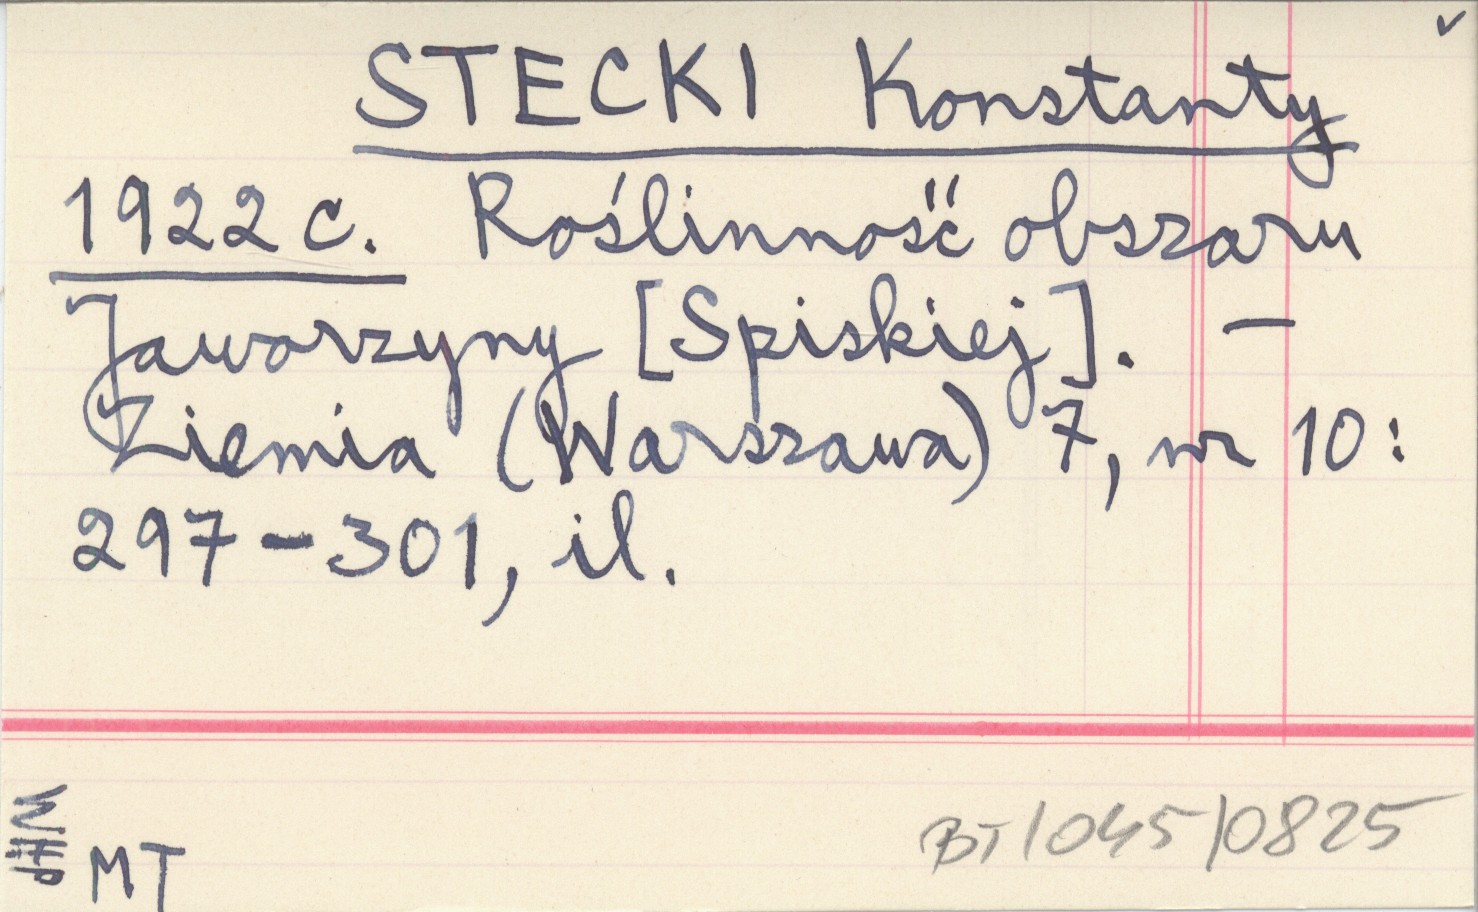 STECKI Konstanty
1922 c. Roślinność obszaru
Jaworzyny [Spiskiej]. —
Ziemia (Warszawa) 7, nr 10:
297-301, il.
MT
BT/045/0825